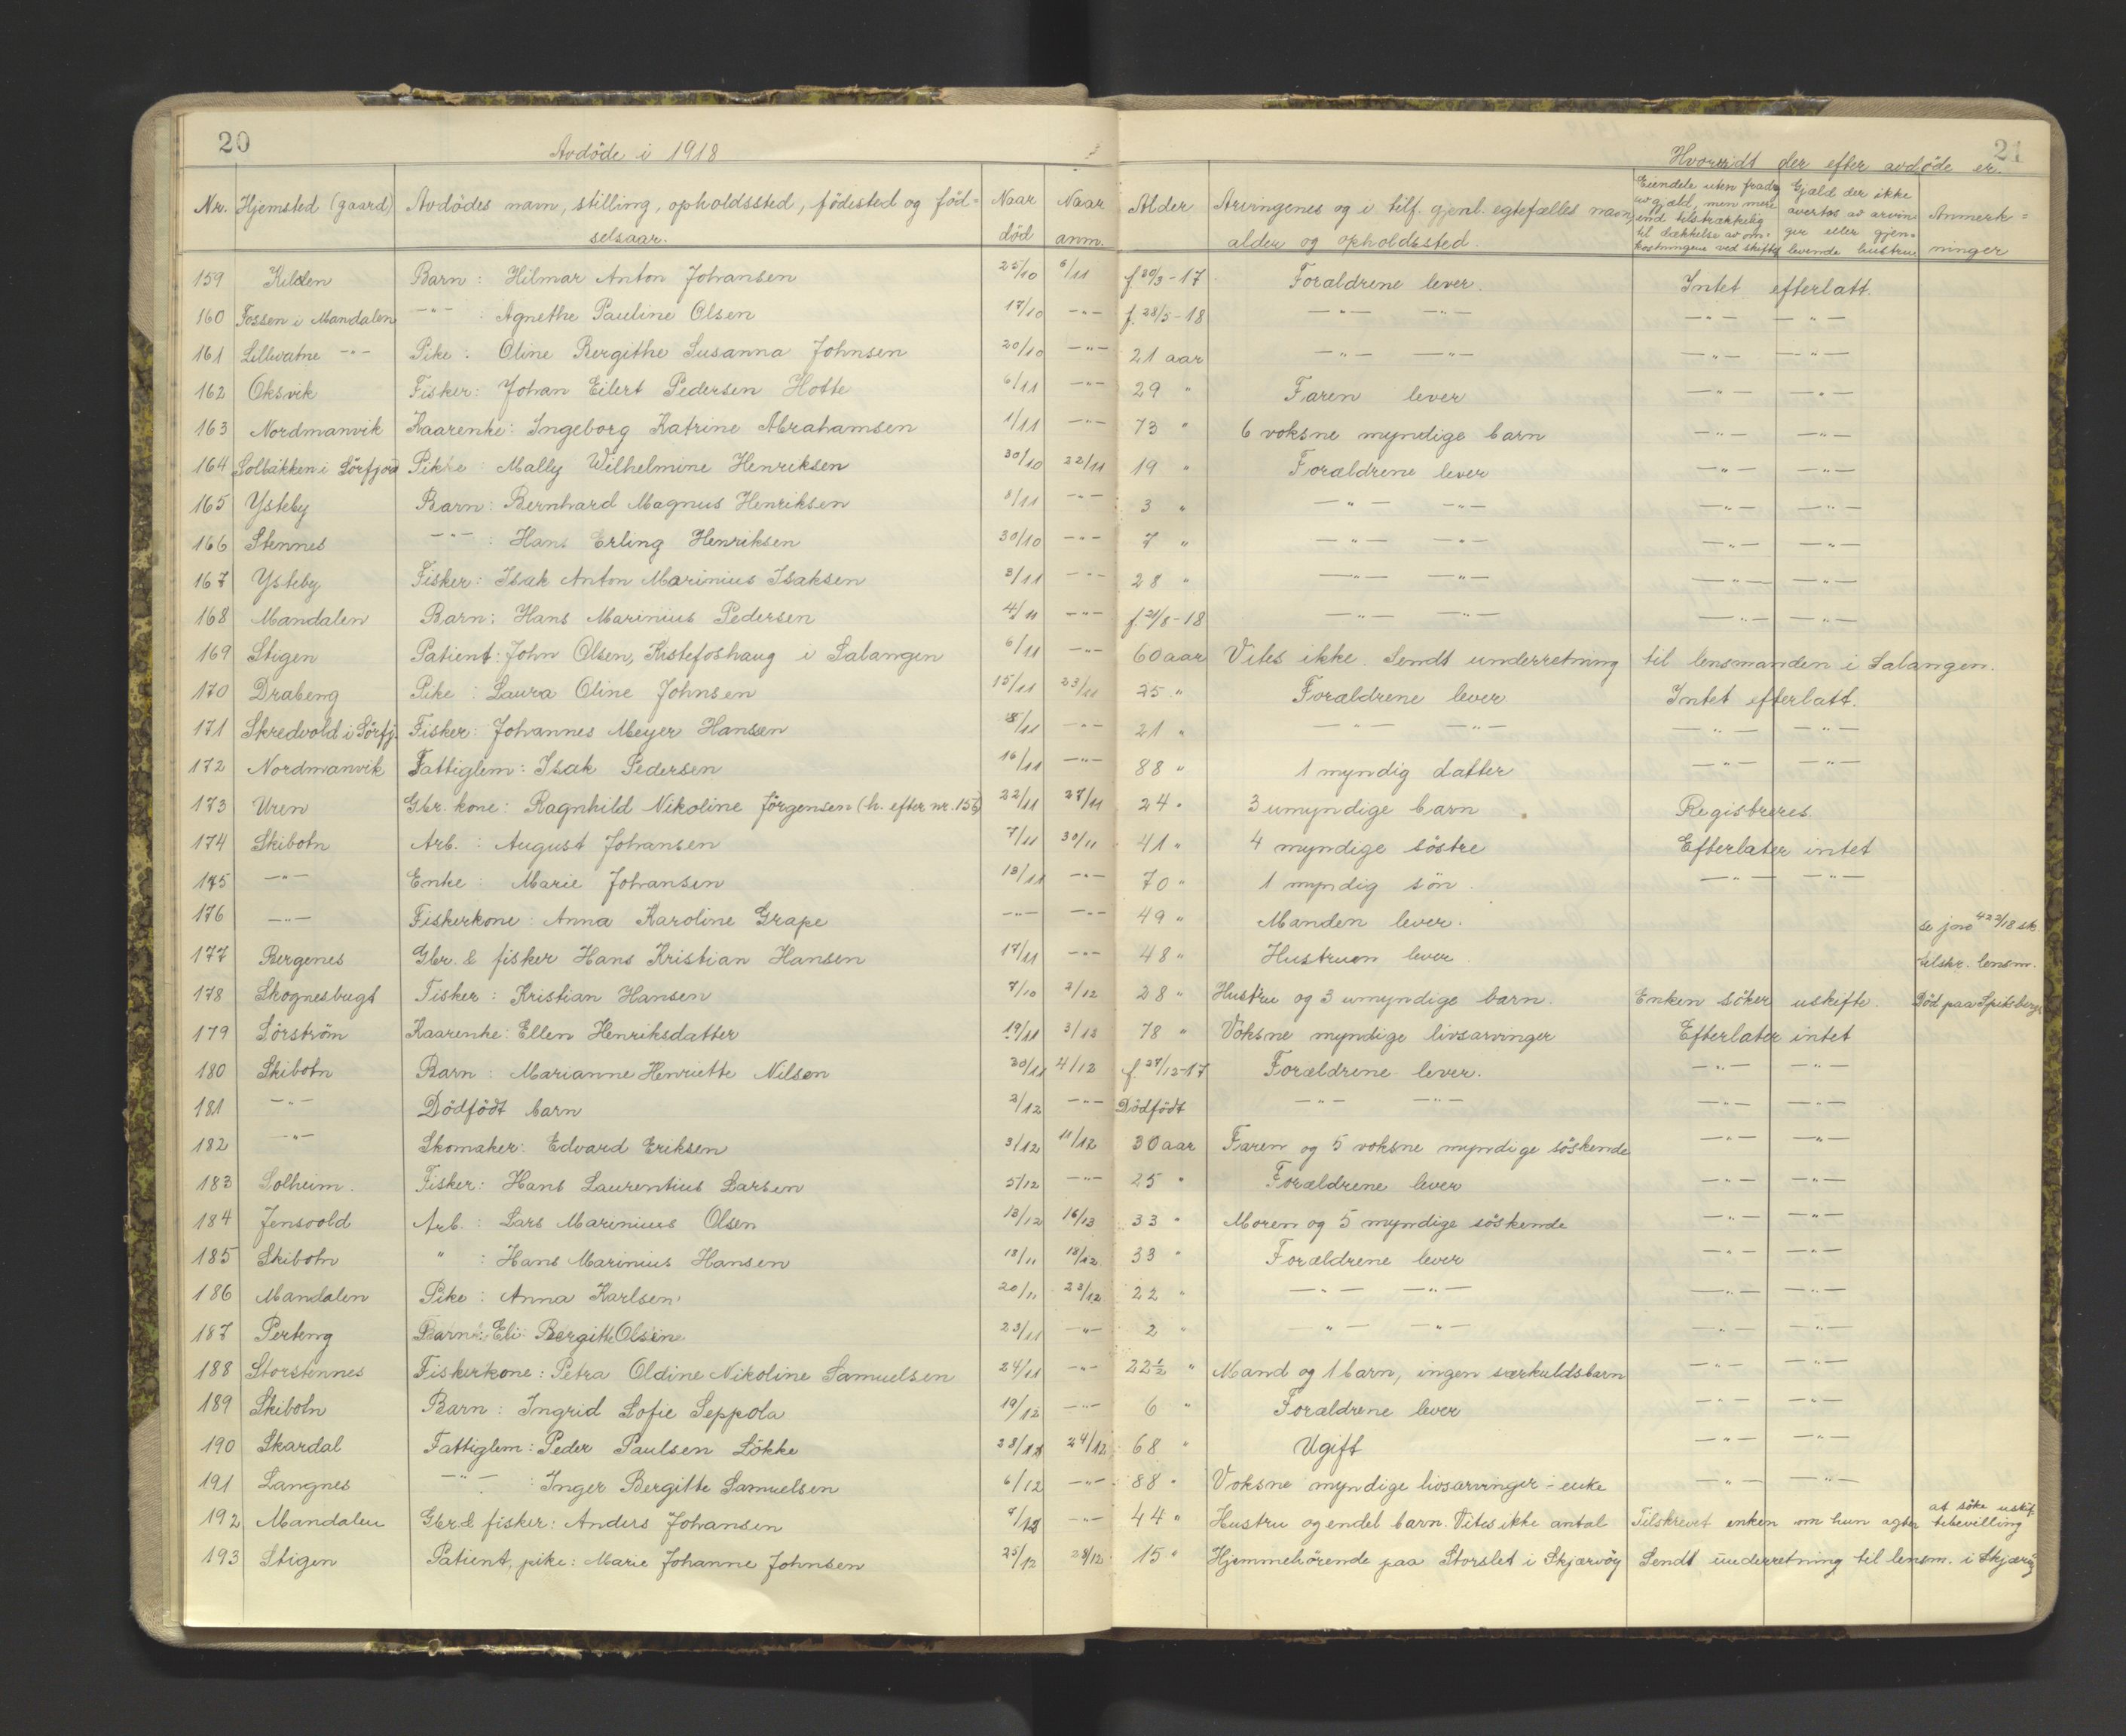 20
Avdöde i 1918
21
Hvorvidt der efter avdöde er.
Nr. Hjemsted (gaard) Avdödes navn, stilling, opholdssted, födested og föd= Naar Naar Alder Arvingenes og i tilf. gjenl. egtefælles navn, Eiendele uten fradrag Gjæld der ikke Anmerk=
selsaar. död anm. alder og opholdssted. av gjæld, men mere overtas av arvin= ninger
end tilstrækkelig ger eller gjen=
til dækkelse av om= levende hustru
kostningene ved skifte
159 Kilden Barn: Hilmar Anton Johansen 25/10 6/11 f. 20/3-17 Forældrene lever. Intet efterlatt.
160 Fossen i Mandalen —"— : Agnethe Pauline Olsen 17/10 —"— f. 28/5-18 —"— —"— —"— —"—
161 Lillevatne —"— Pike: Oline Bergithe Susanna Johnsen 20/10 —"— 21 aar —"— —"— —"— —"—
162 Oksvik Fisker: Johan Eilert Pedersen Hotte 6/11 —"— 29 " Faren lever —"— —"—
163 Nordmanvik Kaarenke: Ingeborg Katrine Abrahamsen 1/11 —"— 73 " 6 voksne myndige barn —"— —"—
164 Solbakken i Sörfjord Pikke: Mally Wilhelmine Henriksen 30/10 22/11 19 " Forældrene lever —"— —"—
165 Ysteby Barn: Bernhard Magnus Henriksen 8/11 —"— 3 " —"— —"— —"— —"—
166 Stennes —"— : Hans Erling Henriksen 30/10 —"— 7 " —"— —"— —"— —"—
167 Ysteby Fisker: Isak Anton Marinius Isaksen 3/11 —"— 28 " —"— —"— —"— —"—
168 Mandalen Barn: Hans Marinius Pedersen 4/11 —"— f. 21/8-18 —"— —"— —"— —"—
169 Stigen Patient: John Olsen, Kistefoshaug i Salangen 6/11 —"— 60 aar Vites ikke. Sendt underretning til lensmanden i Salangen.
170 Drabeng Pike: Laura Oline Johnsen 15/11 23/11 25 " Forældrene lever Intet efterlatt.
171 Skredvold i Sörfj. Fisker: Johannes Meyer Hansen 18/11 —"— 21 " —"— —"— —"— —"—
172 Nordmanvik Fattiglem: Isak Pedersen 16/11 —"— 88 " 1 myndig datter —"— —"—
173 Uren Gbr. kone: Ragnhild Nikoline Jörgensen (h. efter nr. 156) 22/11 27/11 24 " 3 umyndige barn Registreres
174 Skibotn Arb.: August Johansen 7/11 30/11 41 " 4 myndige söstre Efterlater intet
175 —"— Enke: Marie Johansen 13/11 —"— 70 " 1 myndig sön. —"— —"—
176 —"— Fiskerkone: Anna Karoline Grape —"— —"— 49 " Manden lever. se jno 422/18 sk.
177 Bergenes Gbr. & fisker Hans Kristian Hansen 17/11 —"— 48 " Hustruen lever. tilskr. lensm.
178 Skognesbugt Fisker: Kristian Hansen 7/10 2/12 28 " Hustru og 3 umyndige barn. Enken söker uskifte. Död paa Spitsbergen
179 Sörström Kaarenke: Ellen Henriksdatter 19/11 3/12 78 " Voksne myndige livsarvinger Efterlater intet
180 Skibotn Barn: Marianne Henriette Nilsen 30/11 4/12 f. 27/12-17 Forældrene lever. —"— —"—
181 —"— Dödfödt barn 2/12 —"— Dödfödt —"— —"— —"— —"—
182 —"— Skomaker: Edvard Eriksen 3/12 11/12 30 aar Faren og 5 voksne myndige söskende —"— —"—
183 Solheim. Fisker: Hans Laurentius Larsen 5/12 —"— 25 " Forældrene lever —"— —"—
184 Jensvold Arb.: Lars Marinius Olsen 13/12 16/12 33 " Moren og 5 myndige söskende —"— —"—
185 Skibotn " : Hans Marinius Hansen 18/11 18/12 33 " Forældrene lever —"— —"—
186 Mandalen Pike: Anna Karlsen 20/11 23/12 22 " —"— —"— —"— —"—
187 Perteng Barn: Eli Bergitte Olsine 23/11 —"— 2 " —"— —"— —"— —"—
188 Storstennes Fiskerkone: Petra Oldine Nikoline Samuelsen 24/11 —"— 22½ " Mand og 1 barn, ingen særkuldsbarn —"— —"—
189 Skibotn Barn: Ingrid Sofie Seppola 19/12 —"— 6 " Forældrene lever —"— —"—
190 Skardal Fattiglem: Peder Paulsen Lökke 23/12 24/12 68 " Ugift —"— —"—
191 Langnes —"— : Inger Bergitte Samuelsen 6/12 —"— 88 " Voksne myndige livsarvinger - enke —"— —"—
192 Mandalen Gbr. & fisker: Anders Johansen 7/12 —"— 44 " Hustru og endel barn. Vites ikke antal Tilskrevet enken om hun agter at söke uskif= tebevilling
193 Stigen Patient, pike: Marie Johanne Johnsen 25/12 28/12 15 " Hjemmehörende paa Storslet i Skjærvöy Sendt underretning til lensm. i Skjærvöy